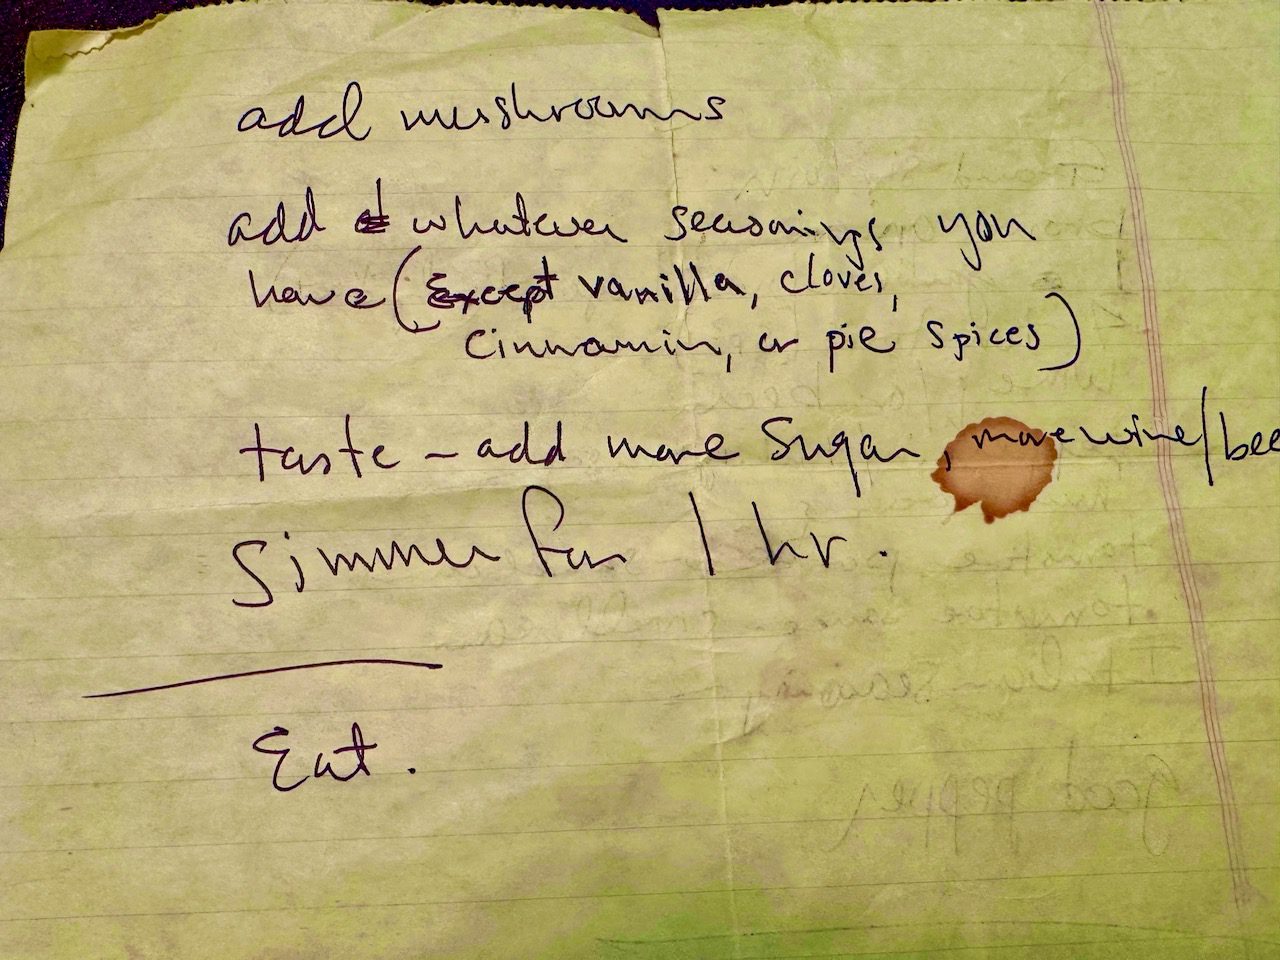 add mushrooms
add whatever seasonings you
have (Except vanilla, cloves,
cinnamin, or pie spices)
taste - add more sugar, more wine/bee
Simmer for 1 hr.
Eat.